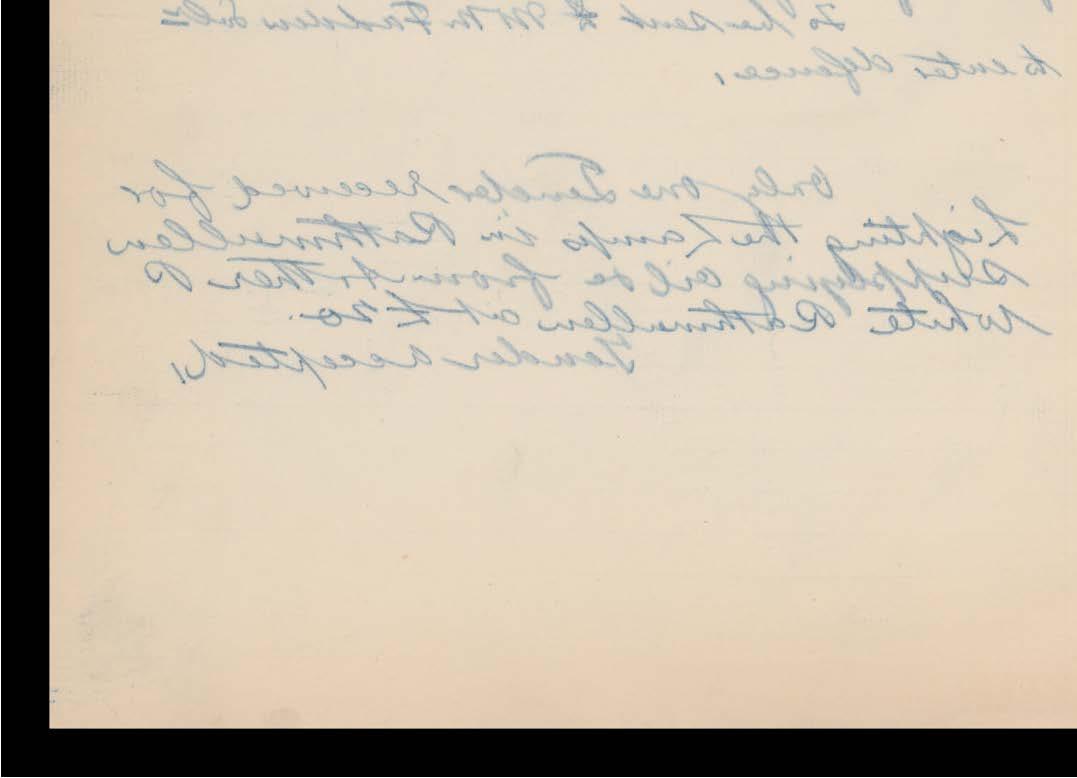 To be sent to Mr McFadden Sol=
to enter defence.
Only one Tender received for
Lighting the Lamps in Rathmullen
Supplying oil &c from Arther P
White Rathmullen at £20.
Tender accepted,